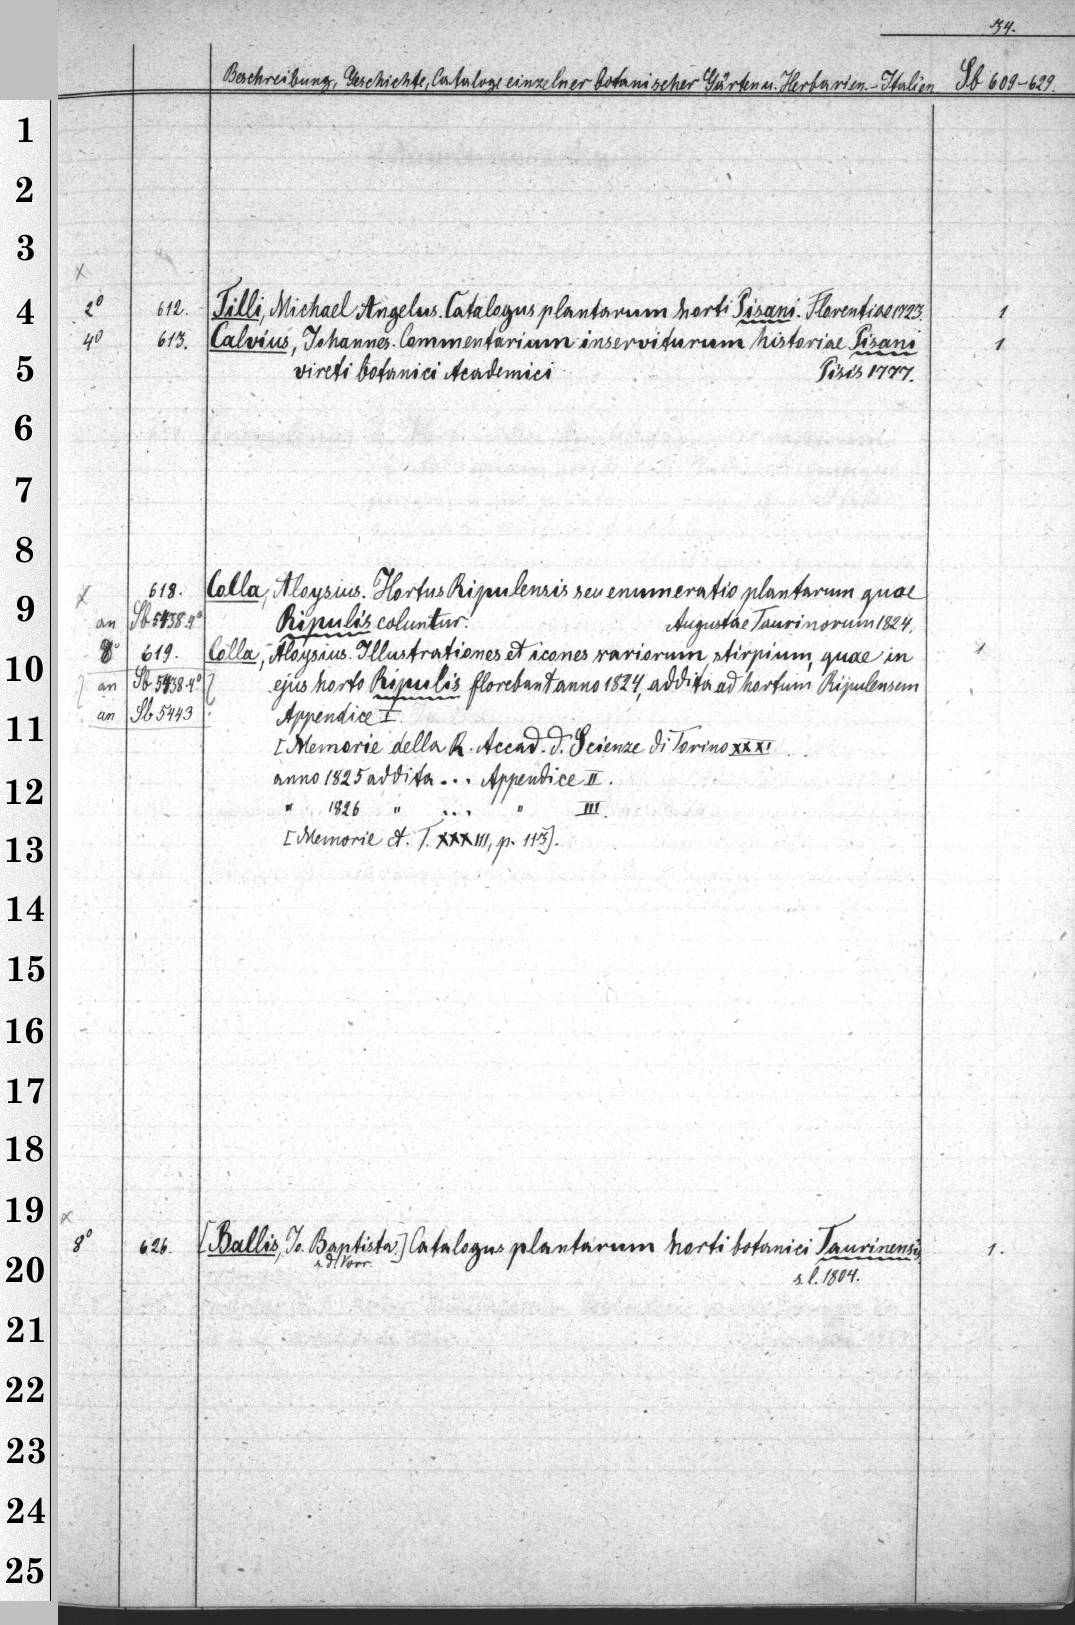 34.
Beschreibung, Geschichte, Cataloge einzelner botanischer Gärten u. Herbarien. - Italien Sb 609-629.
1
2
3
4
5
6
7
8
9
10
11
12
13
14
15
16
17
18
19
20
21
22
23
24
25
2° 612. Tilli, Michael Angelus. Catalogus plantarum horti Pisani. Florentiae 1723. 1
4° 613. Calvius, Johannes. Commentarium inserviturum historiae Pisani 1
vireti botanici Academici Pisis 1777.
618. Colla, Aloysius. Hortus Ripulensis seu enumeratio plantarum quae
an Sb 5438.4° Ripulis coluntur. Augustae Taurinorum 1824.
8° 619. Colla, Aloysius. Illustrationes et icones rariorum stirpium, quae in 1
an Sb 5438.4° ejus horto Ripulis florebant anno 1824, addita ad hortum Ripulensem
an Sb 5443 Appendice I.
[Memorie della R. Accad. d. Scienze di Torino XXXI
anno 1825 addita ... Appendice II.
" 1826 " ... " III.
[Memorie ct. T. XXXIII, p. 113].
8° 626. [Ballis, Jo. Baptista.] Catalogus plantarum horti botanici Taurinensis, 1.
s. d. Vorr. s. l. 1804.